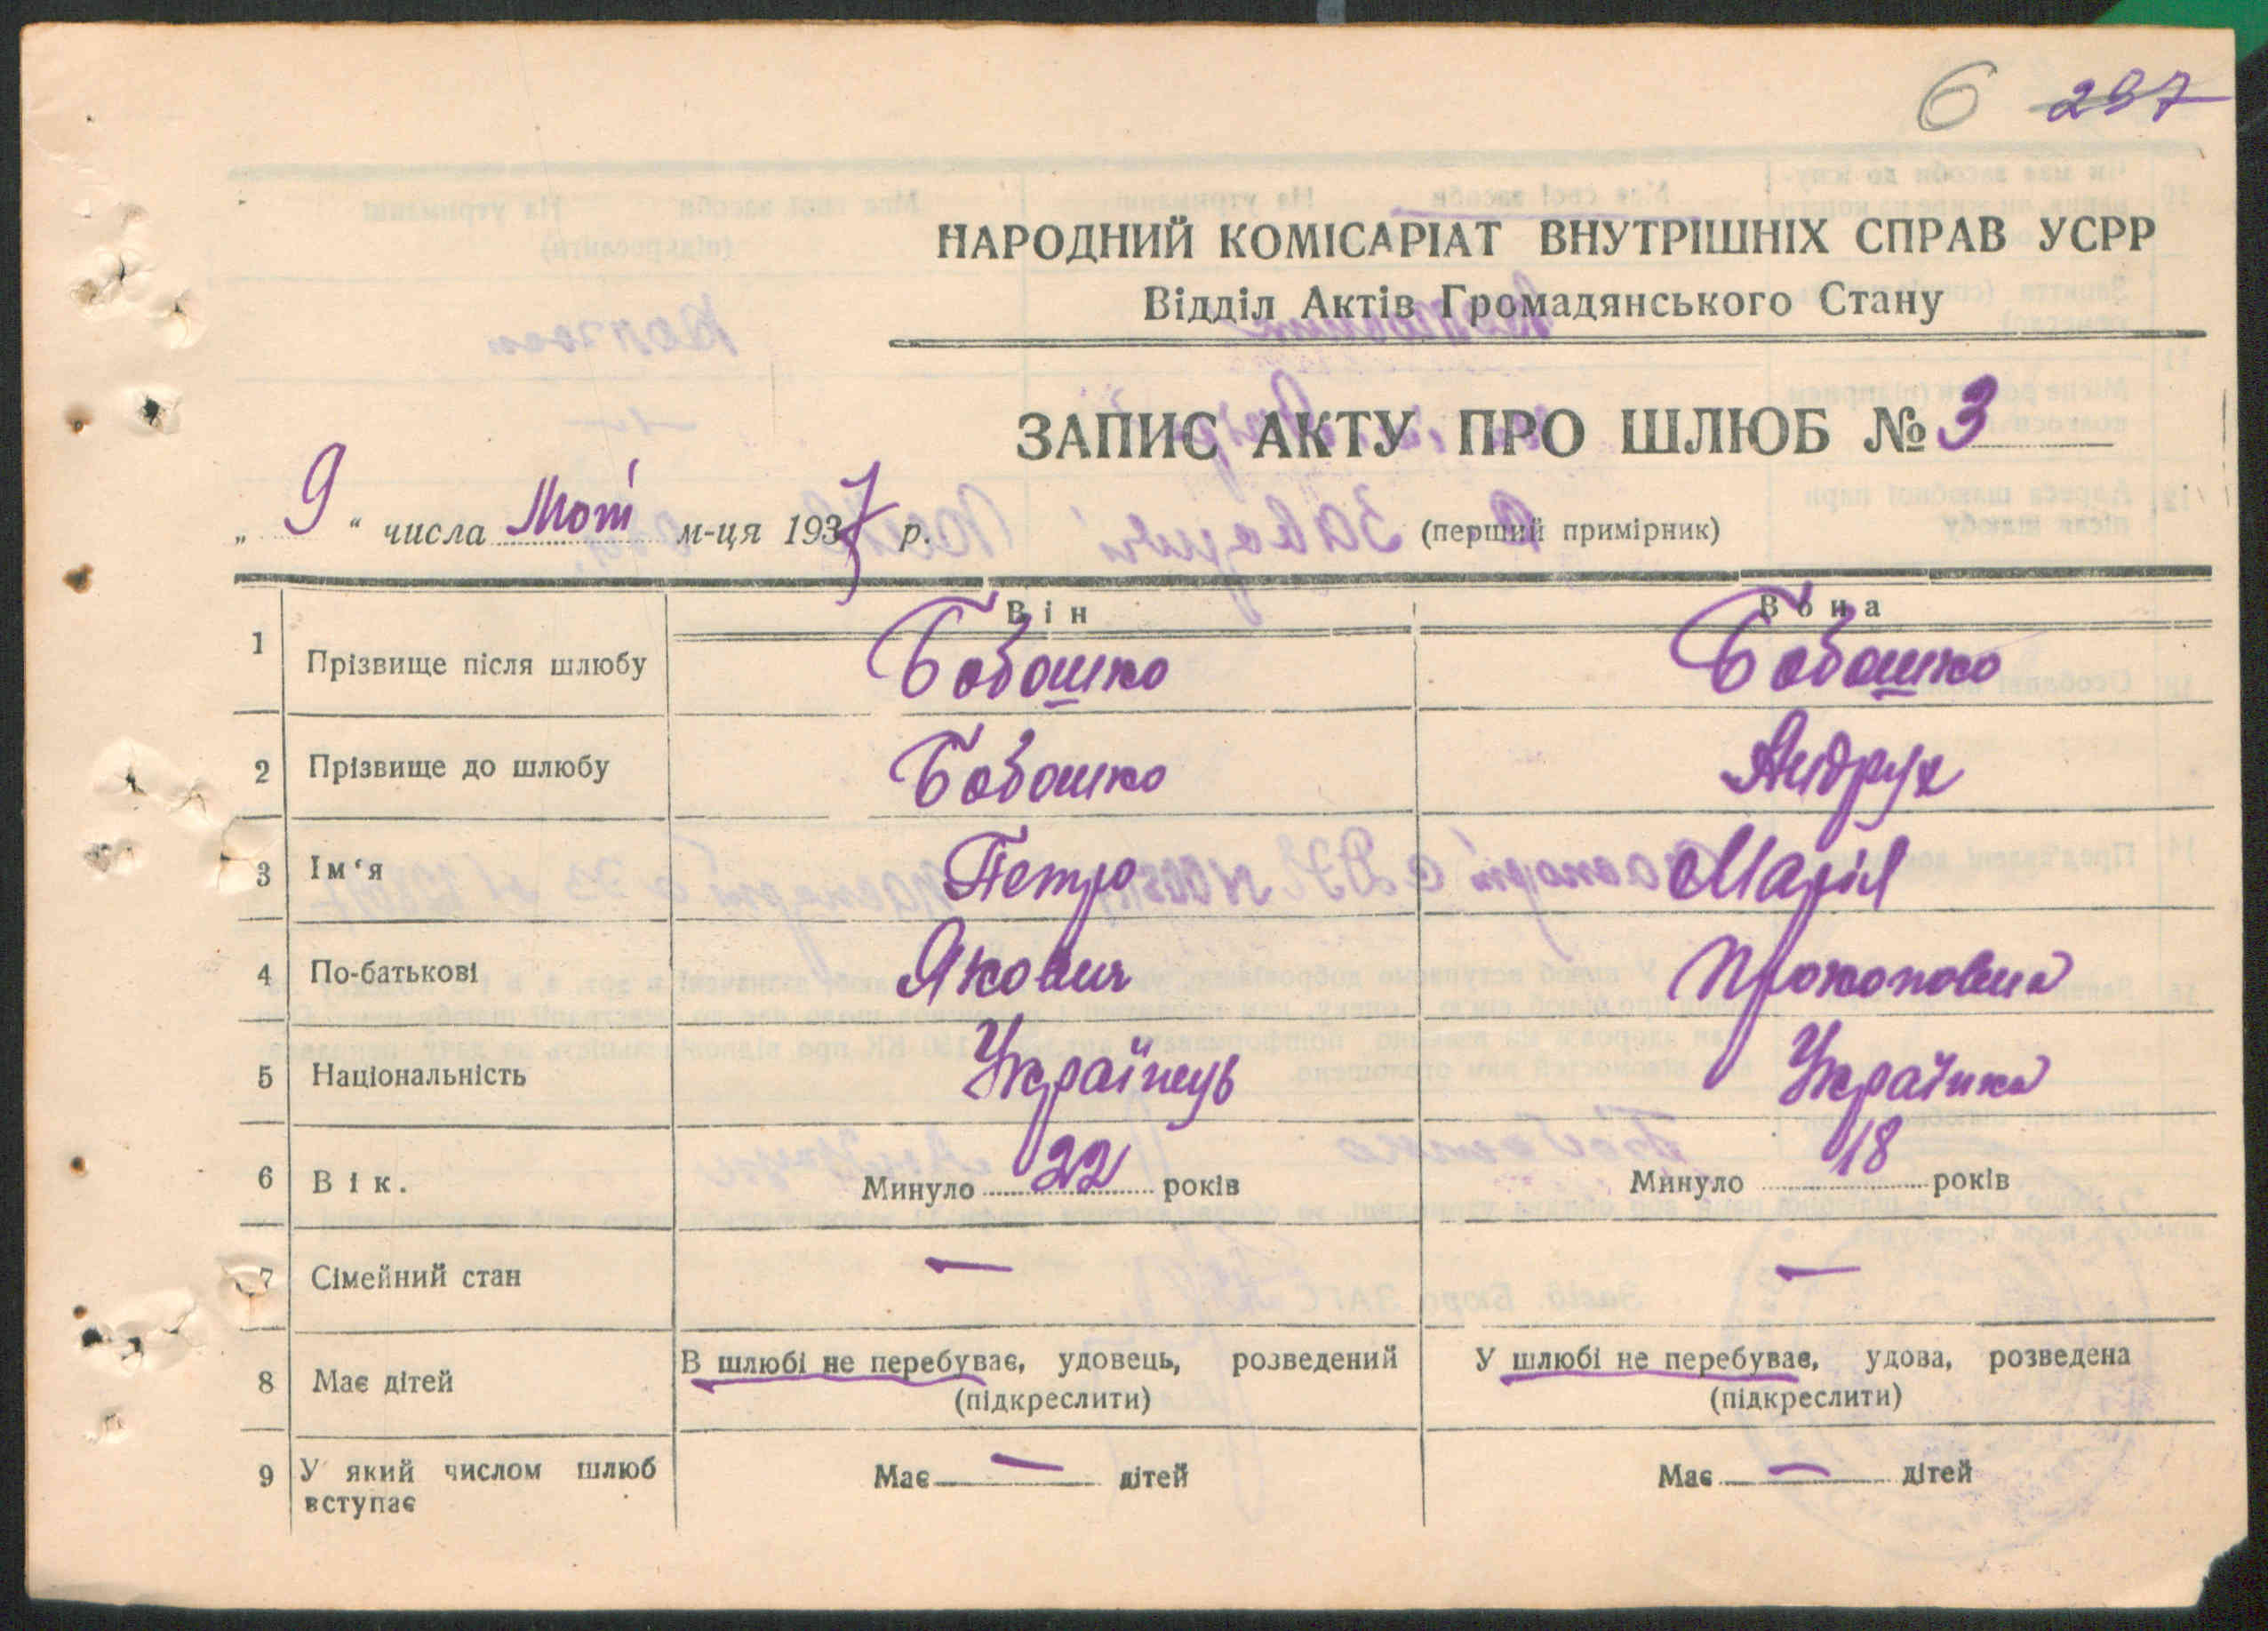 6 297
НАРОДНИЙ КОМІСАРІАТ ВНУТРІШНІХ СПРАВ УСРР
Відділ Актів Громадянського Стану
ЗАПИС АКТУ ПРО ШЛЮБ № 3
„ 9 “ числа м-ця 1937 р. (перший примірник)
Він Вона
1 Прізвище після шлюбу Бабашко Бабашко
2 Прізвище до шлюбу Бабашко Андрух
3 Ім‘я Петро Марія
4 По-батькові Якович Прокоповна
5 Національність Українець Українка
6 Вік. Минуло 22 років Минуло 18 років
7 Сімейний стан — —
8 Має дітей В шлюбі не перебуває, удовець, розведений У шлюбі не перебуває, удова, розведена
(підкреслити) (підкреслити)
9 У який числом шлюб Має — дітей Має — дітей
вступає